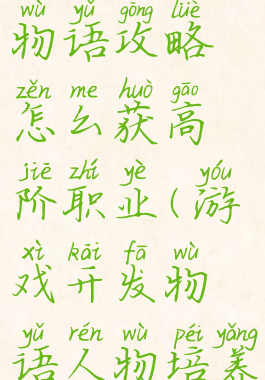 wù yǔ gōng lüè
物语攻略
zěn me huò gāo
怎么获高
jiē zhí yè yóu
阶职业(游
xì kāi fā wù
戏开发物
yǔ rén wù péi yǎng
语人物培养